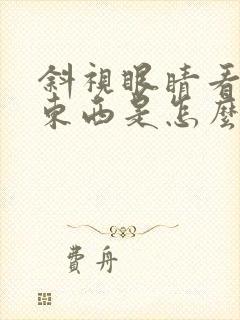 斜視眼睛看
東西是怎麼
費舟